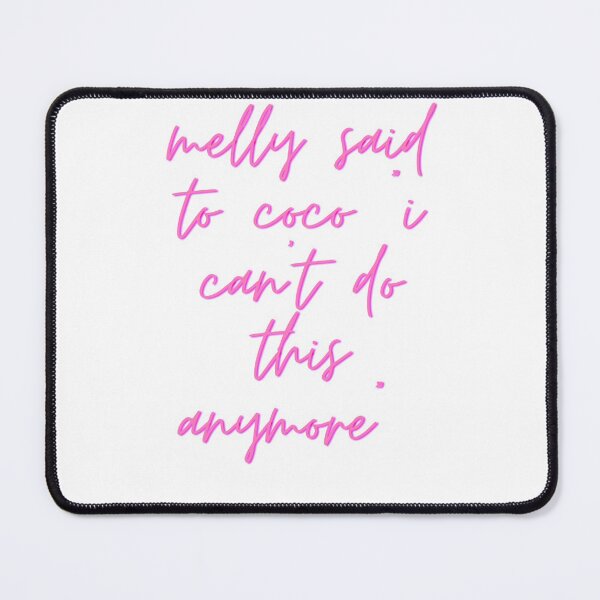 melly said
to coco "i
can't do
this
anymore"